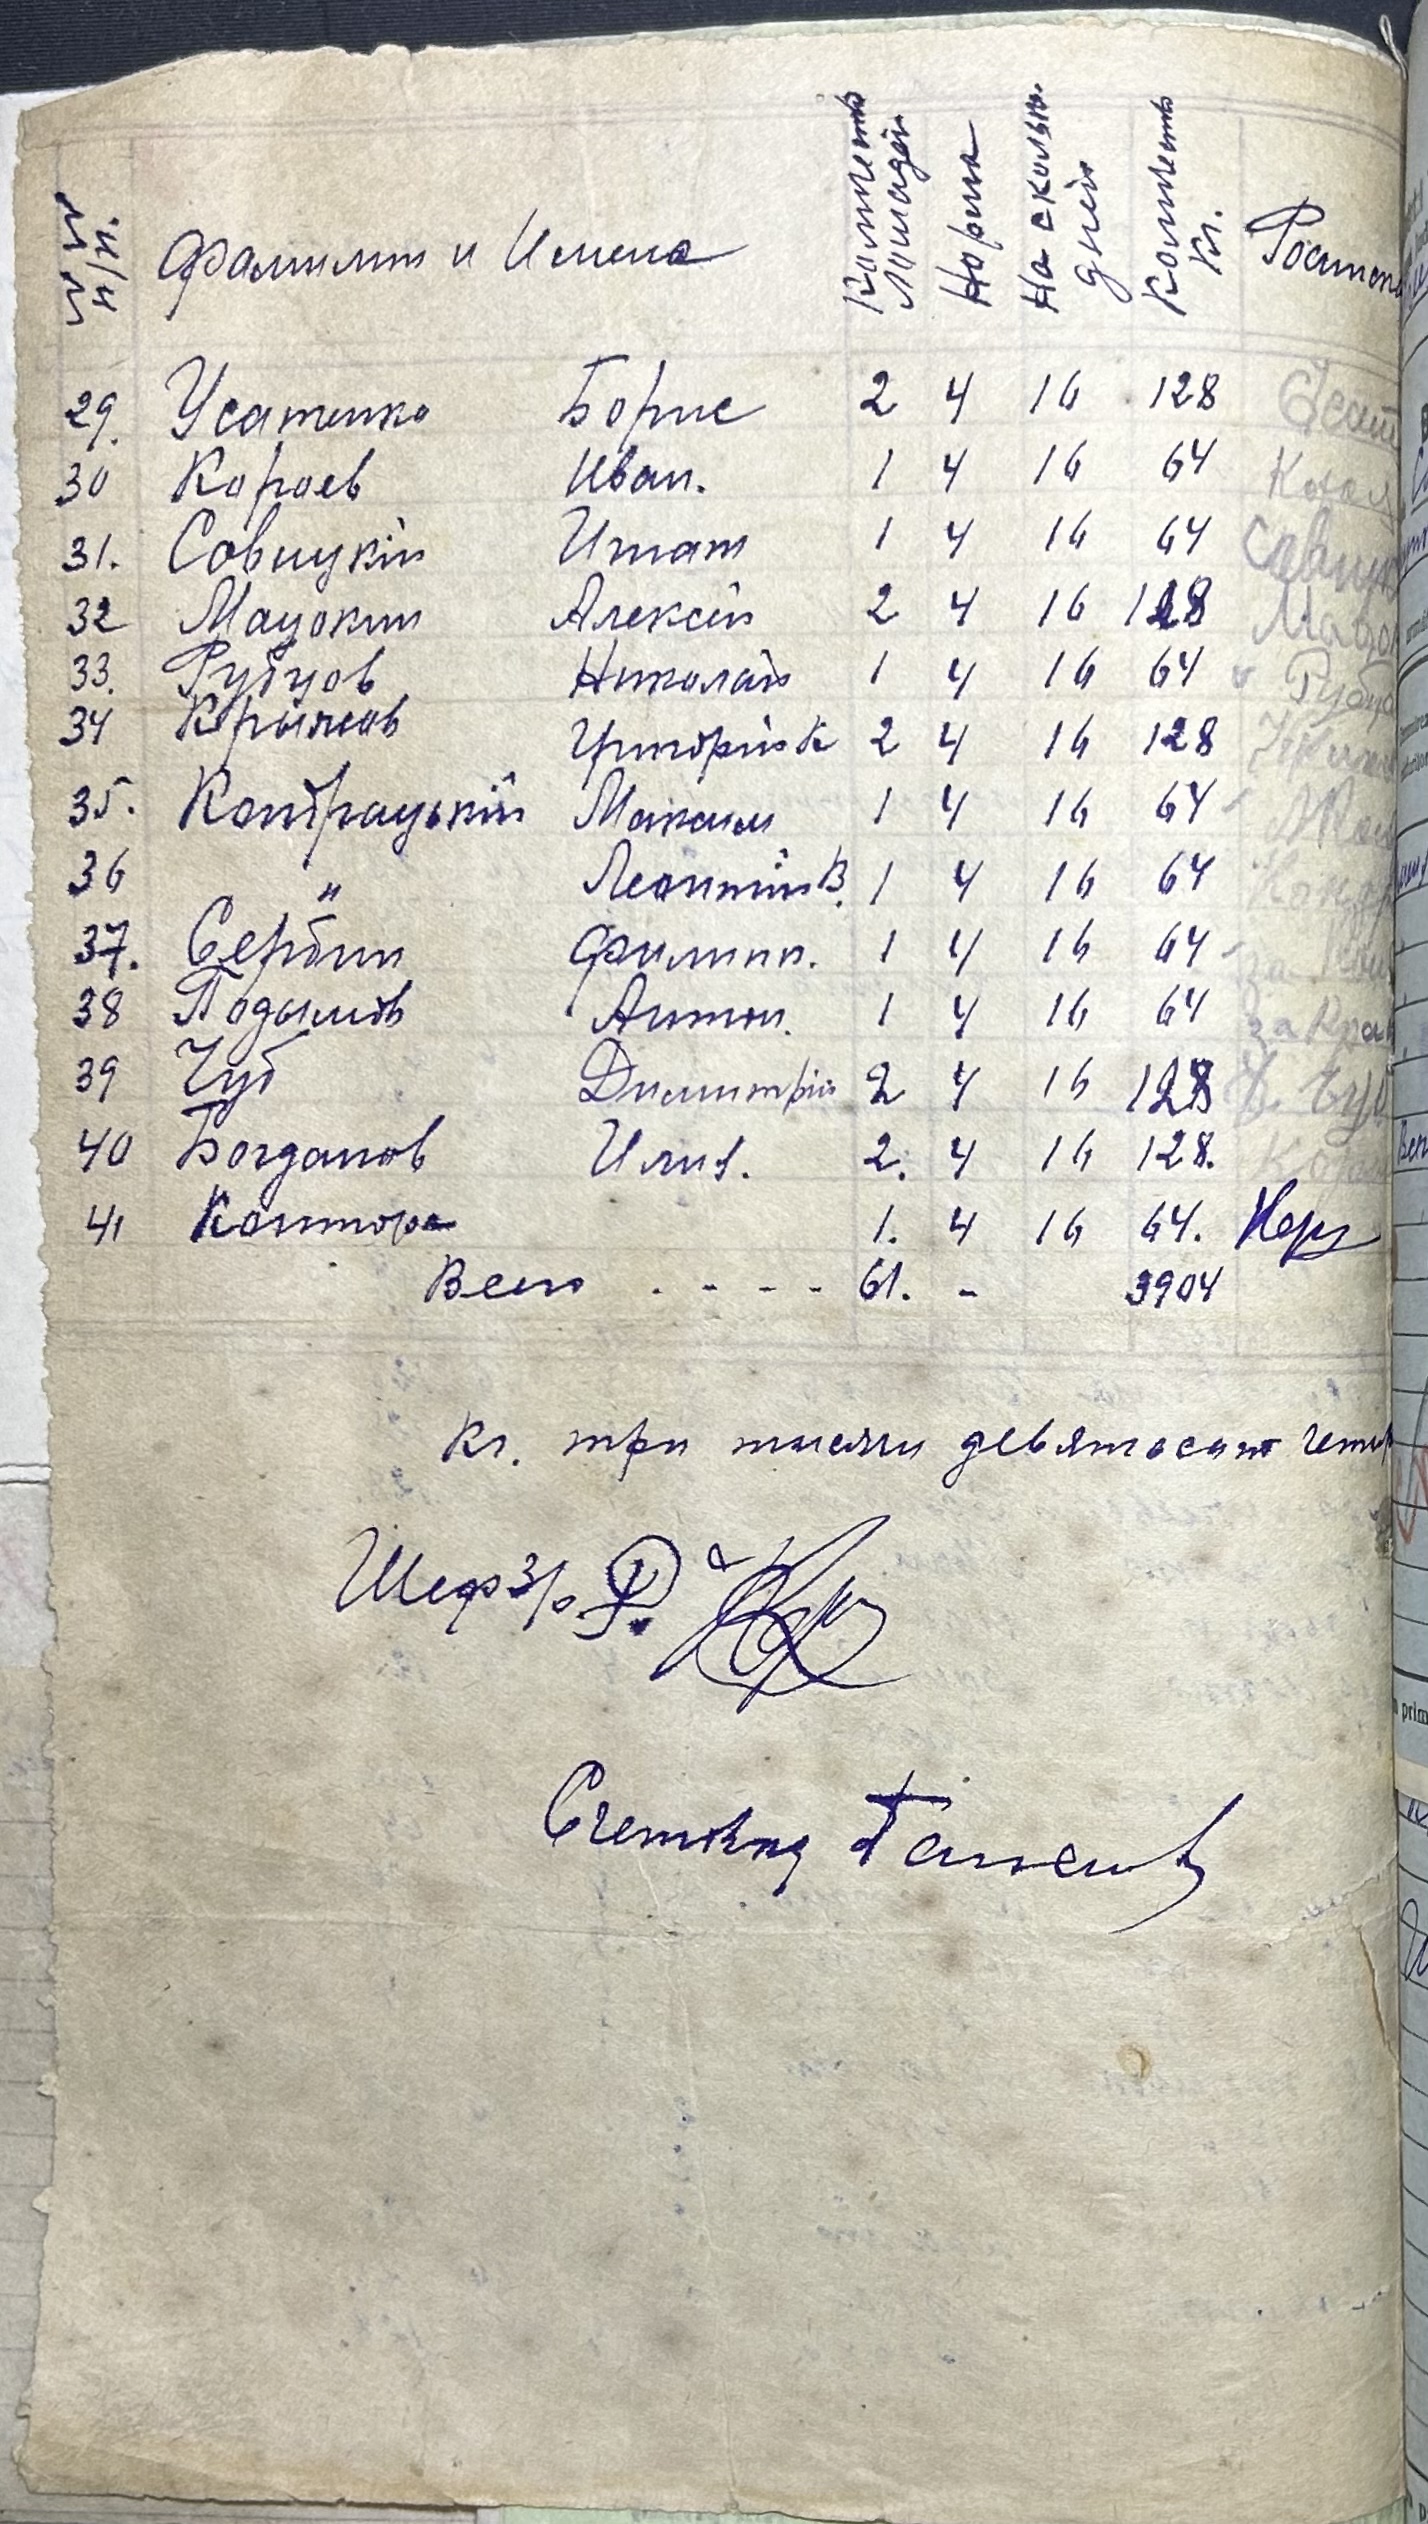 №№ п/п. Фамилии и Имена Количеств Лошадей Норма На скольк. дней Количеств Кг. Роспис
29. Усатенко Борис 2 4 16 128
30 Кораев Иван. 1 4 16 64
31. Совицкій Игнат 1 4 16 64 Савицк
32 Мацокин Алексей 2 4 16 128
33. Рубцов Николай 1 4 16 64 Рубцо
34 Крыжов К 2 4 16 128
35. Контрацькій Максим 1 4 16 64
36 " Леонтій В. 1 4 16 64
37. Сербин Филипп. 1 4 16 64 за
38 Подымов Антон. 1 4 16 64 за
39 Чуб Димитрій 2 4 16 128 Чуб
40 Богданов Илья. 2. 4 16 128.
41 Контора 1. 4 16 64.
Всего . - - - - 61. - 3904
Кг. три тысячи девятьсот четыр
Шеф
Счетовод